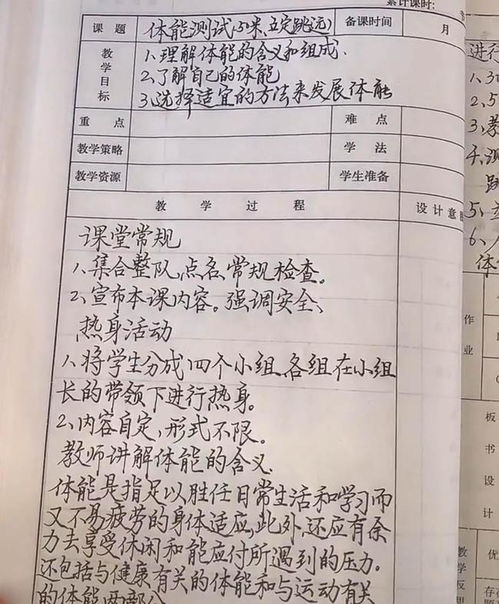 累计课时:
课题 体能测试(50米,立定跳远) 备课时间 月
教学目标 1、理解体能的含义和组成.
2、了解自己的体能
3、选择适宜的方法来发展体能
重点 难点
教学策略 学法
教学资源 学生准备
教学过程 设计意
课堂常规
1、集合整队,点名,常规检查。
2、宣布本课内容。强调安全、
热身活动
1、将学生分成四个小组,各组在小组
长的带领下进行热身。
2、内容自定,形式不限。
教师讲解体能的含义.
体能是指足以胜任日常生活和学习而
又不易疲劳的身体适应,此外,还应有余
力去享受休闲和能应付所遇到的压力。
还包括与健康有关的体能和与运动有关
的体能两部分
进行
作业
板书设计
教学反思
优